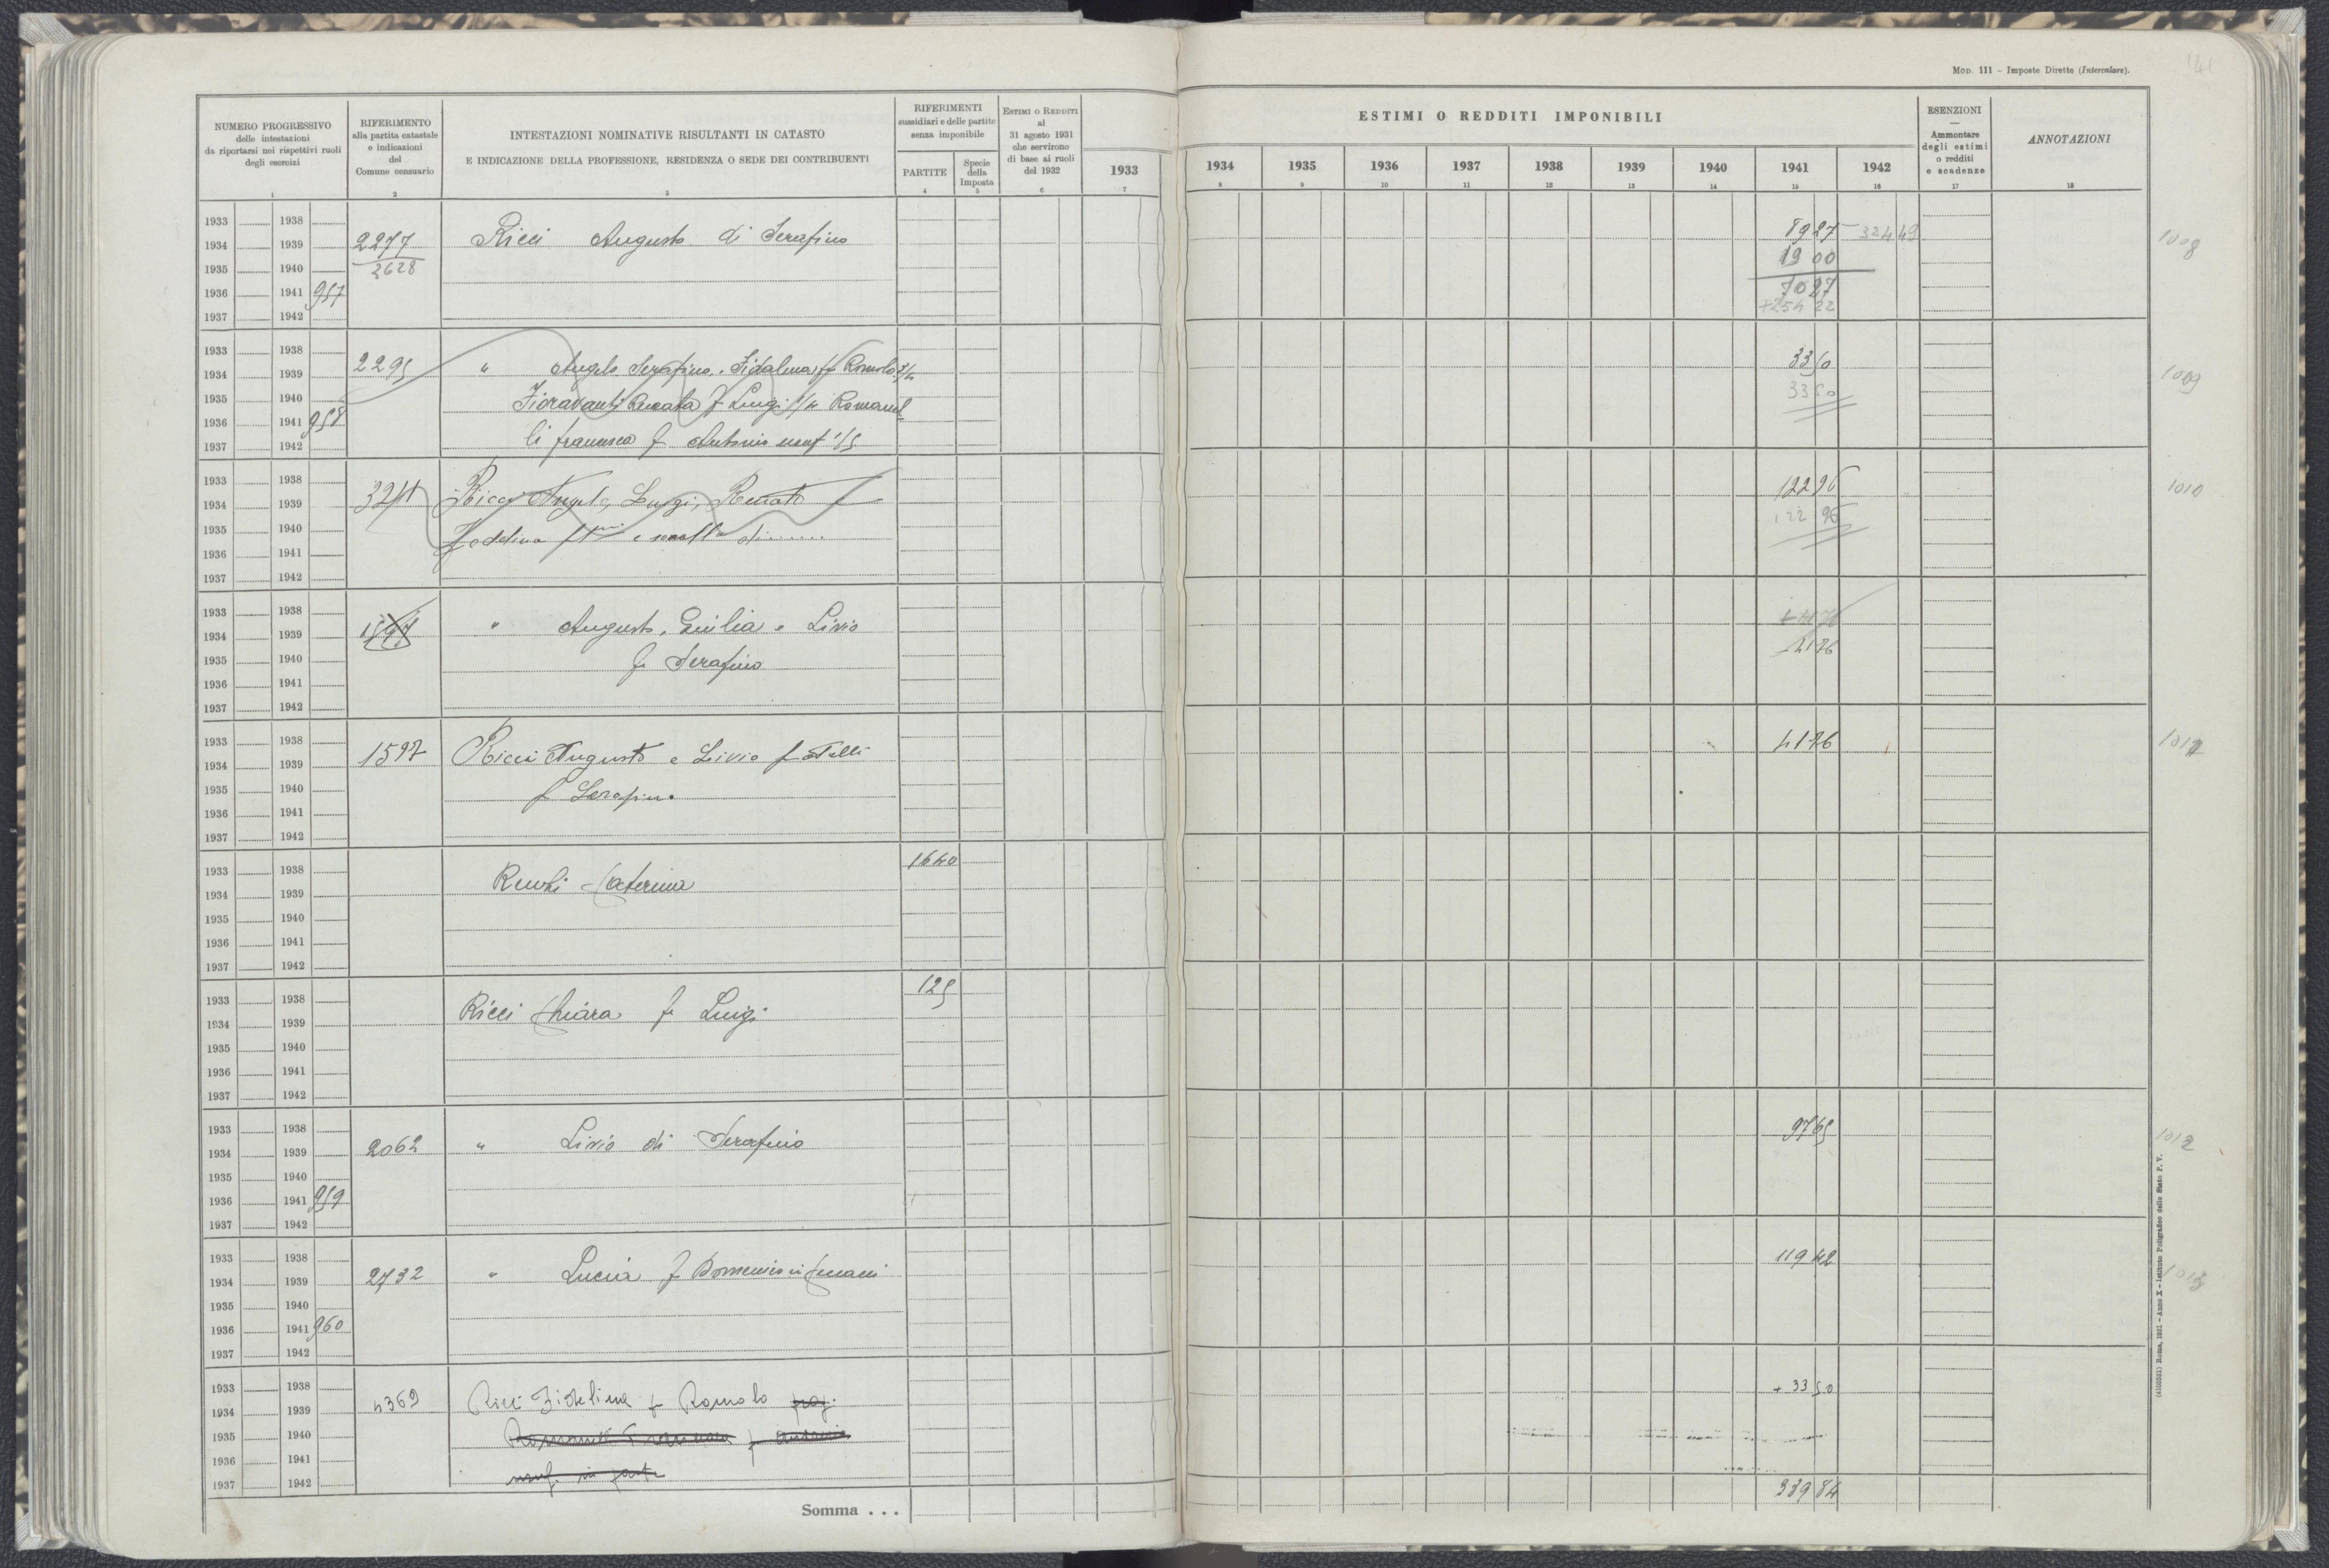 MOD. 111 – Imposte Dirette (Intercalare).
141
NUMERO PROGRESSIVO
delle intestazioni
da riportarsi nei rispettivi ruoli
degli esercizi
1
RIFERIMENTO
alla partita catastale
e indicazioni
del
Comune censuario
2
INTESTAZIONI NOMINATIVE RISULTANTI IN CATASTO
E INDICAZIONE DELLA PROFESSIONE, RESIDENZA O SEDE DEI CONTRIBUENTI
3
RIFERIMENTI
sussidiari e delle partite
senza imponibile
PARTITE
4
Specie
della
Imposta
5
ESTIMI O REDDITI
al
31 agosto 1931
che servirono
di base ai ruoli
del 1932
6
1933
7
ESTIMI O REDDITI IMPONIBILI
1934 1935 1936 1937 1938 1939 1940 1941 1942
8 9 10 11 12 13 14 15 16
ESENZIONI
—
Ammontare
degli estimi
o redditi
e scadenze
17
ANNOTAZIONI
18
1933 1938
1934 1939 2277 Ricci Augusto di Serafino 89 27 324 49 1008
1935 1940 3628 19 00
1936 1941 957 70 27
1937 1942 +254 22
1933 1938
1934 1939 2295 " Angelo Serafino, Fidalma f Romolo 33 50 1009
1935 1940 Fioravanti Renata f Luigi 1/4 Romanel 33 50
1936 1941 958 li francesca f Antonio usuf 1/5
1937 1942
1933 1938
1934 1939 Ricci Angelo, Luigi, Renato 122 96 1010
1935 1940 122 96
1936 1941
1937 1942
1933 1938
1934 1939 1597 " Augusto, Emilia e Livio
1935 1940 f Serafino 41 76
1936 1941
1937 1942
1933 1938
1934 1939 1597 Ricci Augusto e Livio fratelli 41 76
1935 1940 f Serafino
1936 1941
1937 1942
1933 1938 1640
1934 1939 Caterina
1935 1940
1936 1941
1937 1942
1933 1938 125
1934 1939 Ricci Chiara f Luigi
1935 1940
1936 1941
1937 1942
1933 1938
1934 1939 2062 " Livio di Serafino 97 69 1012
1935 1940
1936 1941 959
1937 1942
1933 1938
1934 1939 2732 " Lucia f Domenico in 119 42 1013
1935 1940
1936 1941 960
1937 1942
1933 1938
1934 1939 4369 Ricci Fidelina f Romolo + 33 50
1935 1940 f Antonio
1936 1941 usuf. in parte
1937 1942
Somma . . . 339 84
(4105031) Roma, 1931 – Anno X – Istituto Poligrafico dello Stato P. V.